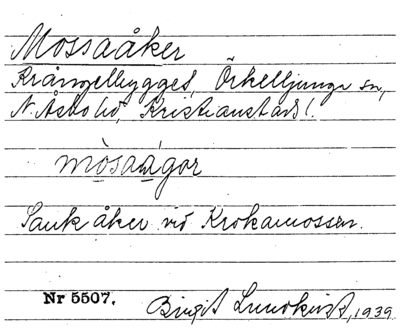 Mossaåker
Krångelbygget, Örkelljunga sn,
N. Åsbo hd, Kristianstads l.
mòsaágor
Sank åker vid Krokamossen.
Nr 5507. Birgit Lundkvist, 1939.